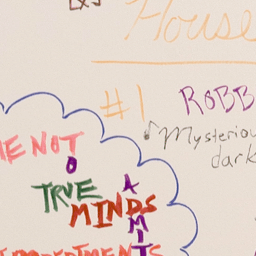 House
#1 ROBB
Mysteriou
dark
E NOT
TO
TRUE
MINDS
ADMIT
IMPEDIMENTS